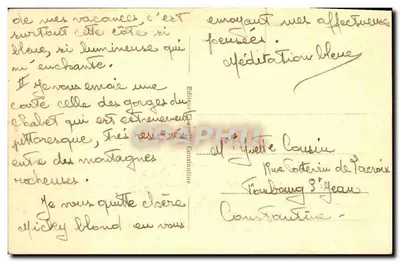 de mes vacances, c'est
surtout cette côte si
bleue, si lumineuse qui
m'enchante.
Je vous envoie une
carte celle des gorges du
chabet qui est extrêmement
pittoresque, très
entre des montagnes
rocheuses.
Je vous quitte chère
Micky blond en vous
envoyant mes affectueuses
pensées.
Méditation bleue
Constantine
Melle Yvette Cousin
Rue
Faubourg St Jean
Constantine